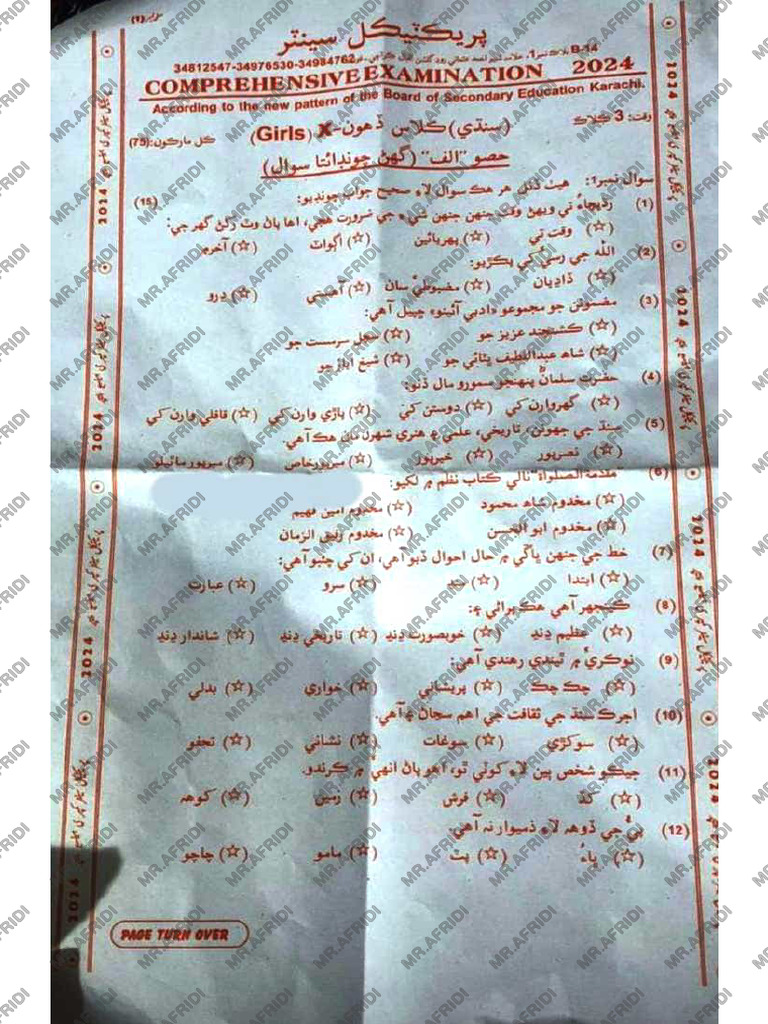 سوالیہ (1)
پریکٹیکل سینٹر
34812547-34976530-34984762
COMPREHENSIVE EXAMINATION 2024
According to the new pattern of the Board of Secondary Education Karachi.
وقت: 3 ڪلاڪ (سنڌي) ڪلاس ڏهون-X (Girls) ڪل مارڪون: (75)
حصو "الف" (گهڻ چونڊائتا سوال)
سوال نمبر1: هيٺ ڏنل هر هڪ سوال لاءِ صحيح جواب چونڊيو: (15)
(1) رڌڻي تي ويهڻ وقت جنهن جنهن شيءِ جي ضرورت هجي، اها پاڻ وٽ رکڻ گهرجي:
(☆) وقت تي (☆) پهريائين (☆) اڳواٽ (☆) آخر ۾
(2) الله جي رسي کي پڪڙيو:
(☆) ڏاڍيان (☆) مضبوطيءَ سان (☆) آهستي (☆) ڍرو
(3) مضمونن جو مجموعو "ادبي آئينو" ڇپيل آهي:
(☆) ڪشنچند عزيز جو (☆) سچل سرمست جو
(☆) شاھ عبداللطيف ڀٽائي جو (☆) شيخ اياز جو
(4) حضرت سلمانؓ پنهنجو سمورو مال ڏنو:
(☆) گهر وارن کي (☆) دوستن کي (☆) پاڙي وارن کي (☆) قافلي وارن کي
(5) سنڌ جي جهونن، تاريخي، علمي ۽ هنري شهرن مان هڪ آهي:
(☆) نصرپور (☆) خيرپور (☆) ميرپورخاص (☆) ميرپور ماٿيلو
(6) "مقدمة الصلواة" نالي ڪتاب نظم ۾ لکيو:
(☆) مخدوم شاھ محمود (☆) مخدوم امين فهيم
(☆) مخدوم ابوالحسن (☆) مخدوم زليق الزمان
(7) خط جي جنهن ڀاڱي ۾ حال احوال ڏبو آهي، ان کي چئبو آهي:
(☆) ابتدا (☆) (☆) سرو (☆) عبارت
(8) ڪينجهر آهي هڪ پراڻي ۽:
(☆) عظيم ڍنڍ (☆) خوبصورت ڍنڍ (☆) تاريخي ڍنڍ (☆) شاندار ڍنڍ
(9) نوڪريءَ ۾ ٿيندي رهندي آهي:
(☆) چڪ چڪ (☆) پريشاني (☆) خواري (☆) بدلي
(10) اجرڪ سنڌ جي ثقافت جي اهم سڃاڻ ۽ آهي.
(☆) سوکڙي (☆) سوغات (☆) نشاني (☆) تحفو
(11) جيڪو شخص ٻين لاءِ کوٽي ٿو، اهو پاڻ انهيءَ ۾ ڪرندو.
(☆) کڏ (☆) فرش (☆) زمين (☆) کوهه
(12) پيءُ جي ڏوهه لاءِ ذميوار نه آهي.
(☆) ڀاءُ (☆) پٽ (☆) مامو (☆) چاچو
PAGE TURN OVER
MR.AFRIDI